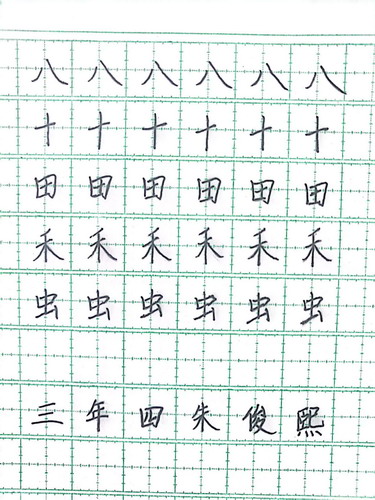 八八八八八八
十十十十十十
田田田田田田
禾禾禾禾禾禾
虫虫虫虫虫虫
三年四朱俊熙